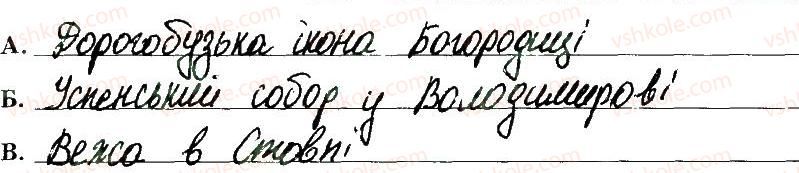 А. Дорогобузька ікона Богородиці
Б. Успенський собор у Володимирові
В. Вежа в Столпі